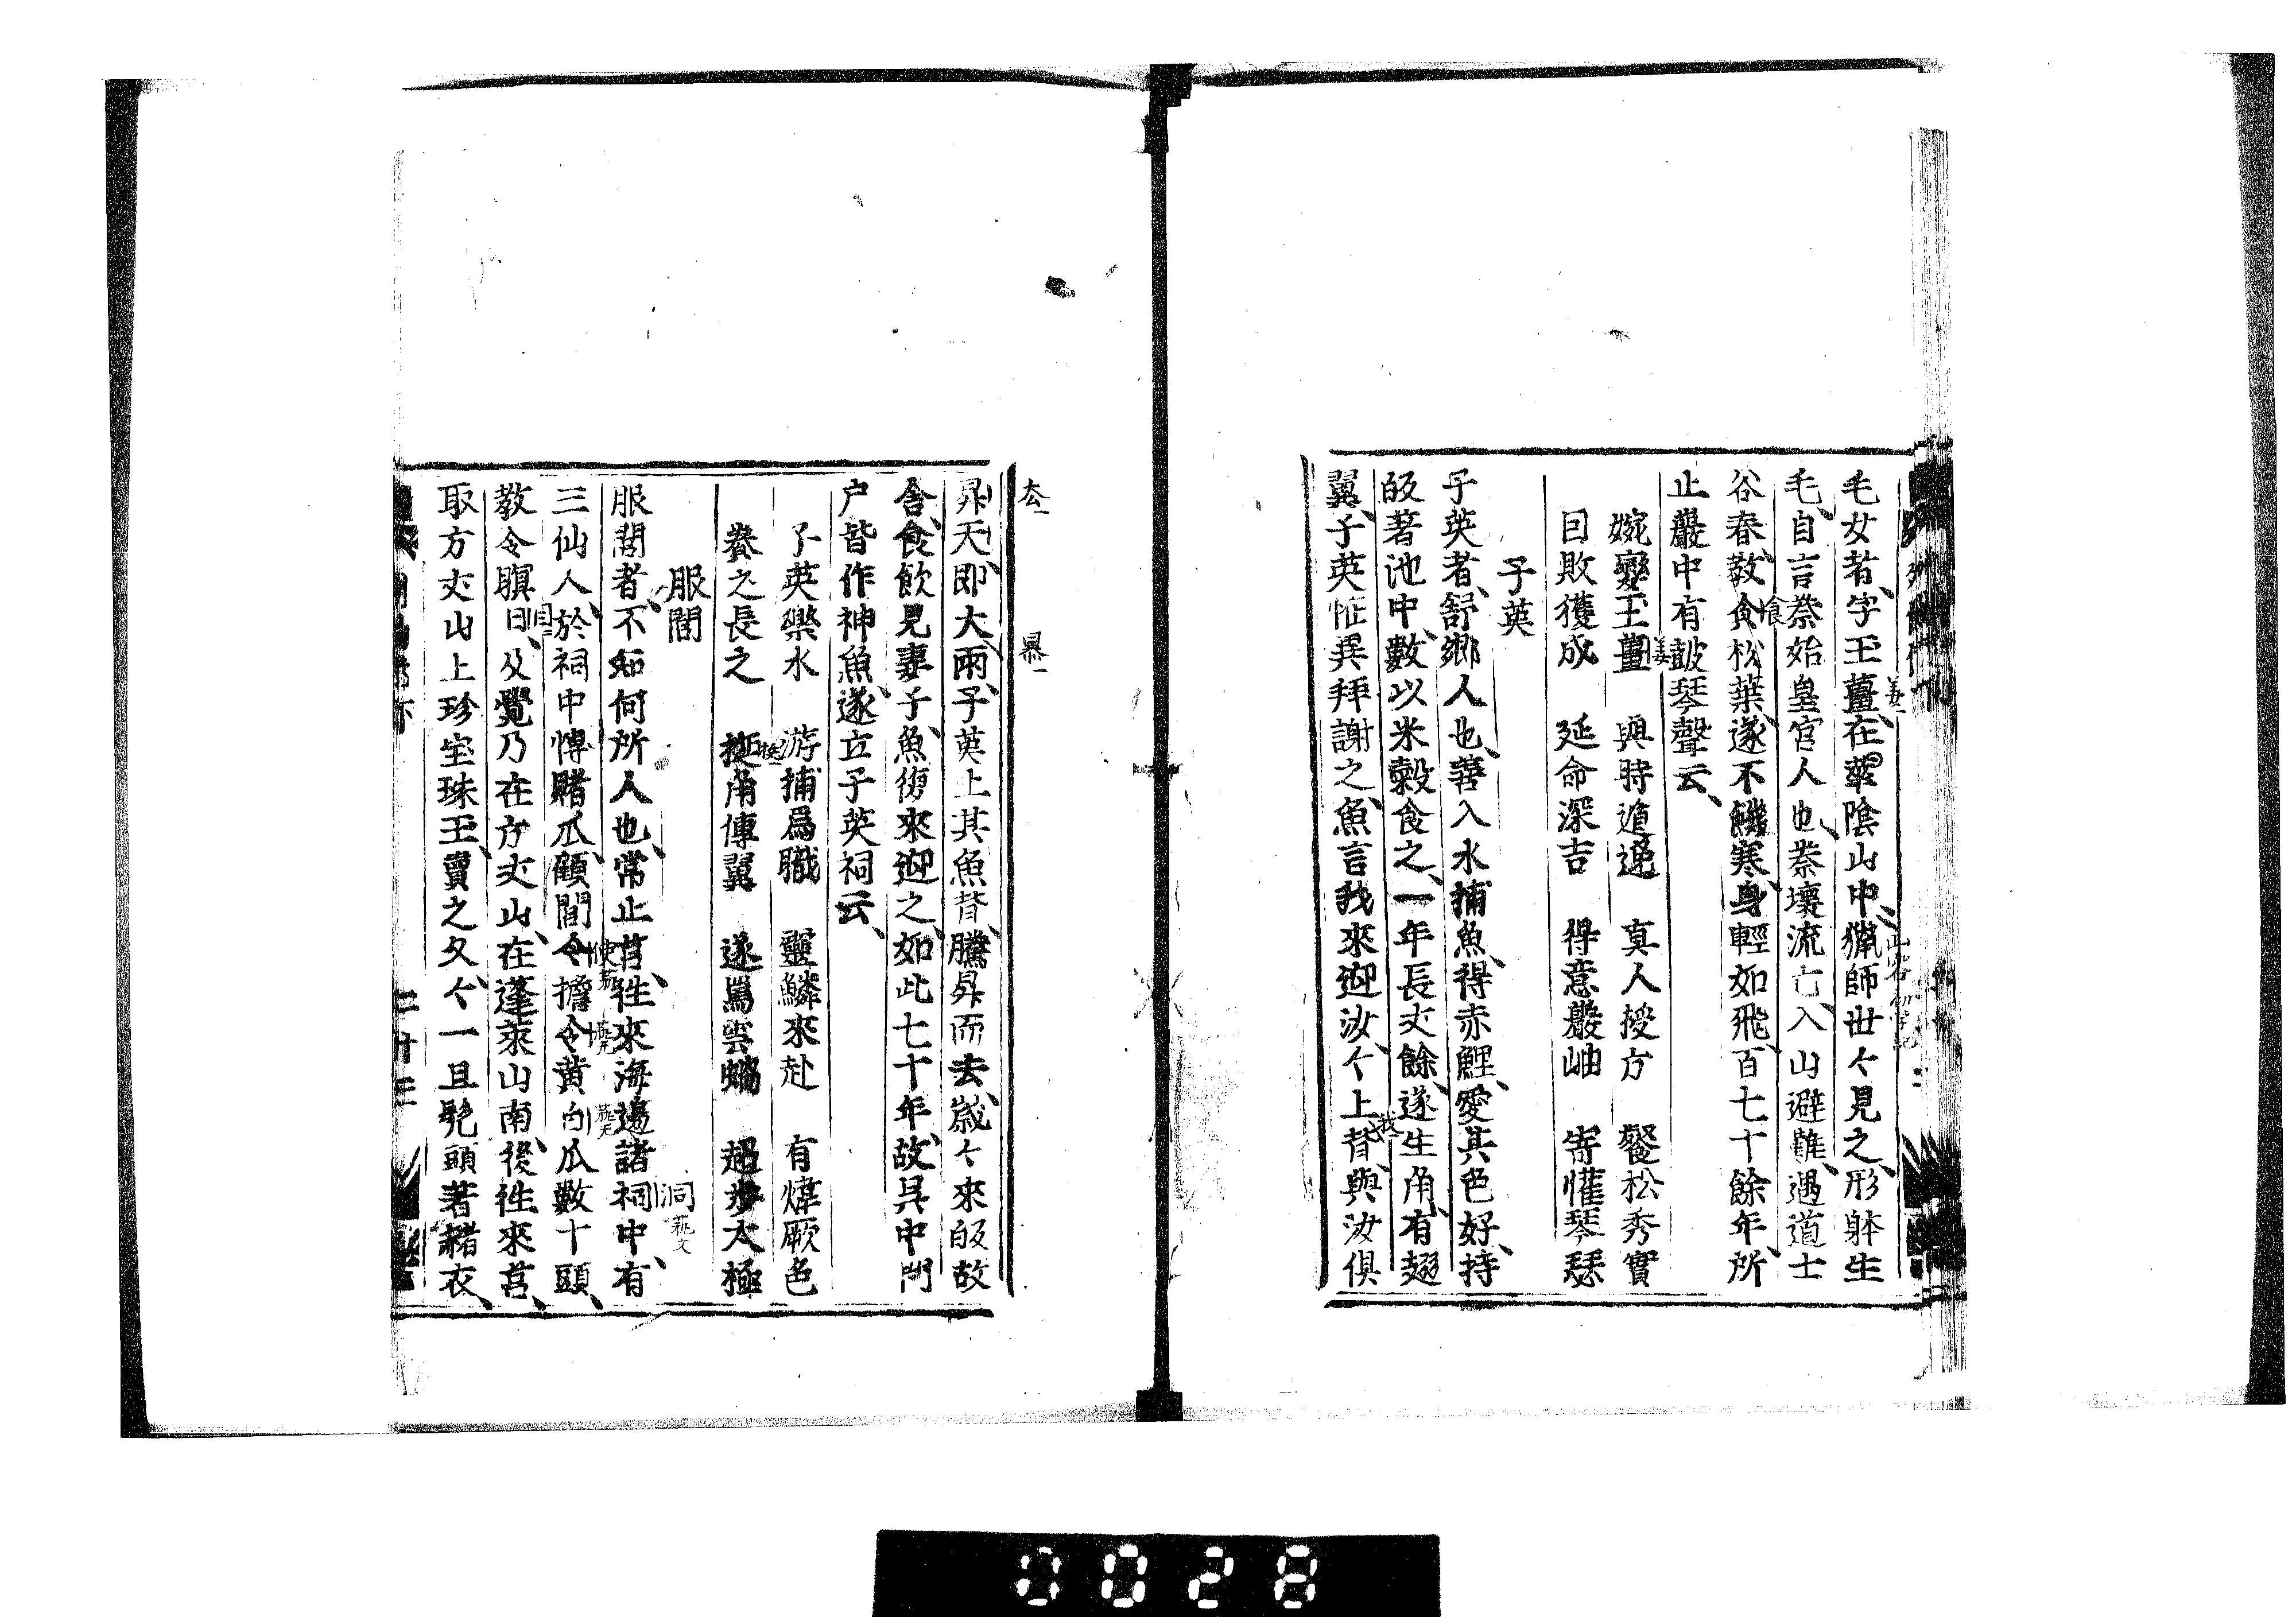 毛女者字玉薑在華陰山中獵師世々見之形躰生
毛自言秦始皇宮人也秦壞流亡入山避難遇道士
谷春教食松葉遂不饑寒身輕如飛百七十餘年所
止巖中有皷琴聲云
婉孌玉薑　與時遁逸　真人授方　餐松秀實
因敗獲成　延命深吉　得意巖岫　寄懽琴瑟
子英
子英者舒鄉人也善入水捕魚得赤鯉愛其色好持
皈著池中數以米穀食之一年長丈餘遂生角有翅
翼子英恠異拜謝之魚言我來迎汝々上背與汝俱
昇天即大雨子英上其魚背騰昇而去歲々來皈故
舍食飲見妻子魚復來迎之如此七十年故吳中門
户皆作神魚遂立子英祠云
子英樂水　游捕爲職　靈鱗來赴　有煒厥色
養之長之　挻角傅翼　遂駕雲螭　超步太極
服閭
服閭者不知何所人也常止莒往來海邊諸祠中有
三仙人於祠中博賭瓜顧閭令擔令黄白瓜數十頭
教令瞑目及覺乃在方丈山在蓬萊山南後往來莒
取方丈山上珍宝珠玉賣之久々一旦髡頭著赭衣
二十三
0028